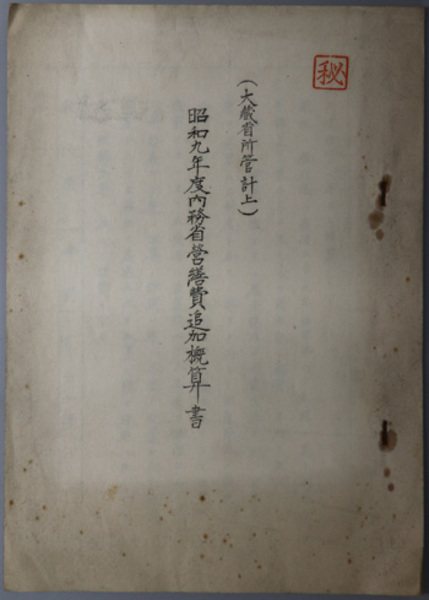 秘
(大蔵省所管計上)
昭和九年度内務省営繕費追加概算書